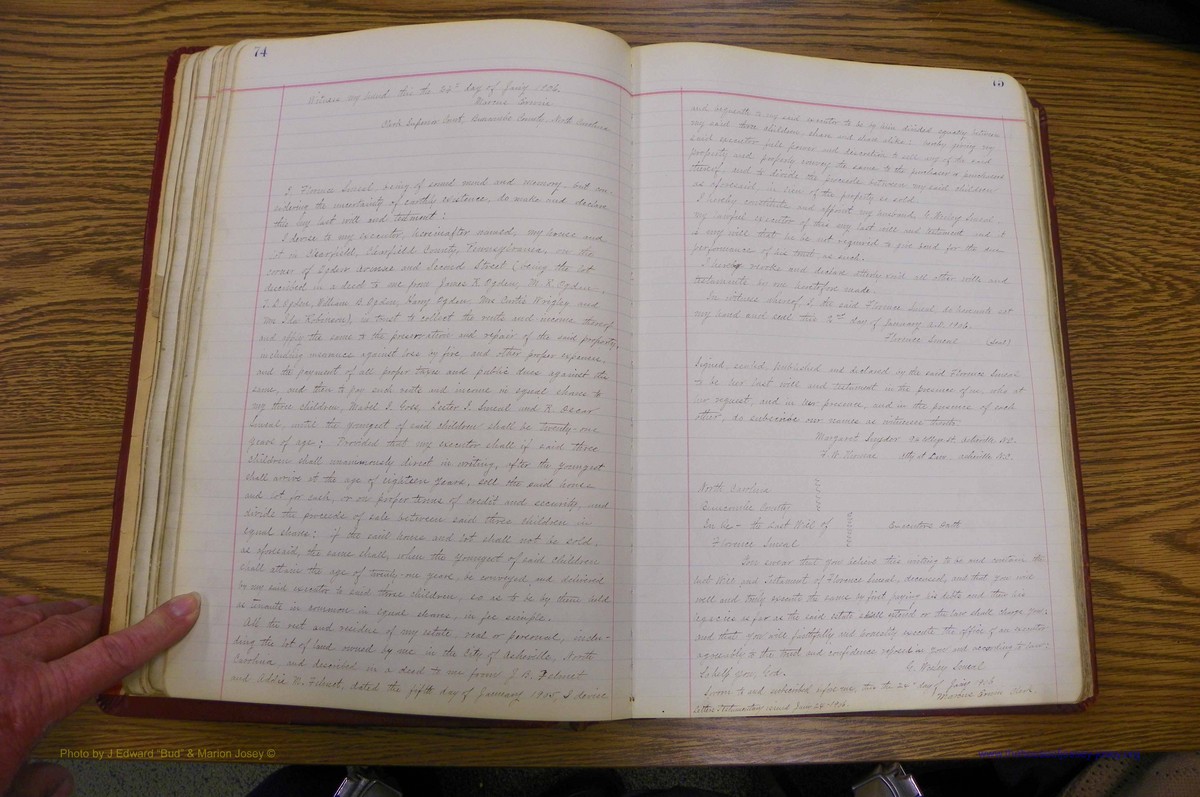 74
Witness my hand this the 24th day of Jany 1916.
Marcus Erwin
Clerk Superior Court, Buncombe County, North Carolina
I, Florence Sneal, being of sound mind and memory, but con-
sidering the uncertainty of earthly existence, do make and declare
this my last will and testment:
I devise to my executor, hereinafter named, my house and
lot in Clearfield, Clearfield County, Pennsylvania, on the
corner of Ogden avenue and Second Street (being the lot
described in a deed to me from James K. Ogden, M. R. Ogden,
Ogden, William B. Ogden, Harry Ogden, Mrs Curtis Wrigley and
Mrs Ida Robinson), in trust to collect the rents and income thereof
and apply the same to the preservation and repair of the said property,
including insurance against loss by fire, and other proper expenses,
and the payment of all proper taxes and public dues against the
same, and then to pay such rents and income in equal shares to
my three children, Mabel S. Goss, Lester Sneal and R. Oscar
Sneal, until the youngest of said children shall be twenty-one
years of age; Provided that my executor shall if said three
children shall unanimously direct in writing, after the youngest
shall arrive at the age of eighteen years, sell the said house
and lot for cash, or on proper terms of credit and security, and
divide the proceeds of sale between said three children in
equal shares: if the said house and lot shall not be sold,
as aforesaid, the same shall, when the youngest of said children
shall attain the age of twenty-one years, be conveyed and delivered
by my said executor to said three children, so as to be by them held
as tenants in common in equal shares, in fee simple.
All the rest and residue of my estate, real or personal, inclu-
ding the lot of land owned by me in the City of Asheville, North
Carolina, and described in a deed to me from J. B.
and Addie N. dated the fifth day of January 1915, I devise
75
and bequeath to my said executor to be by him divided equally between
my said three children, share and share alike: hereby giving my
said executor full power and discretion to sell any of the said
property and properly convey the same to the purchaser or purchasers
thereof and to divide the proceeds between my said children
as aforesaid, in lieu of the property so sold.
I hereby constitute and appoint my husband, C. Wesley Sneal,
my lawful executor of this my last will and testament and it
is my will that he be not required to give bond for the due
performance of his trust, as such.
I hereby revoke and declare utterly void all other wills and
testaments by me heretofore made.
In witness whereof I, the said Florence Sneal, do hereunto set
my hand and seal this day of January A.D. 1916.
Florence Sneal (Seal)
Signed, sealed, published and declared by the said Florence Sneal
to be her last will and testament in the presence of us, who at
her request, and in her presence, and in the presence of each
other, do subscribe our names as witnesses thereto.
Margaret Snyder College St. Asheville N.C.
F. W. Thomas Atty at Law Asheville N.C.
North Carolina
Buncombe County
In Re - the Last Will of Executors Oath
Florence Sneal
You swear that you believe this writing to be and contain the
Last Will and Testament of Florence Sneal, deceased, and that you will
well and truly execute the same by first paying his debts and then his
legacies as far as the said estate shall extend or the law shall charge you,
and that you will faithfully and honestly execute the office of an executor
agreeably to the trust and confidence reposed in you and according to law:
So help you, God.
C. Wesley Sneal
Sworn to and subscribed before me, this the 24th day of Jany 1916
Marcus Erwin Clerk.
Letters Testamentary issued Jany 24-1916.
Photo by J Edward "Bud" & Marion Josey ©